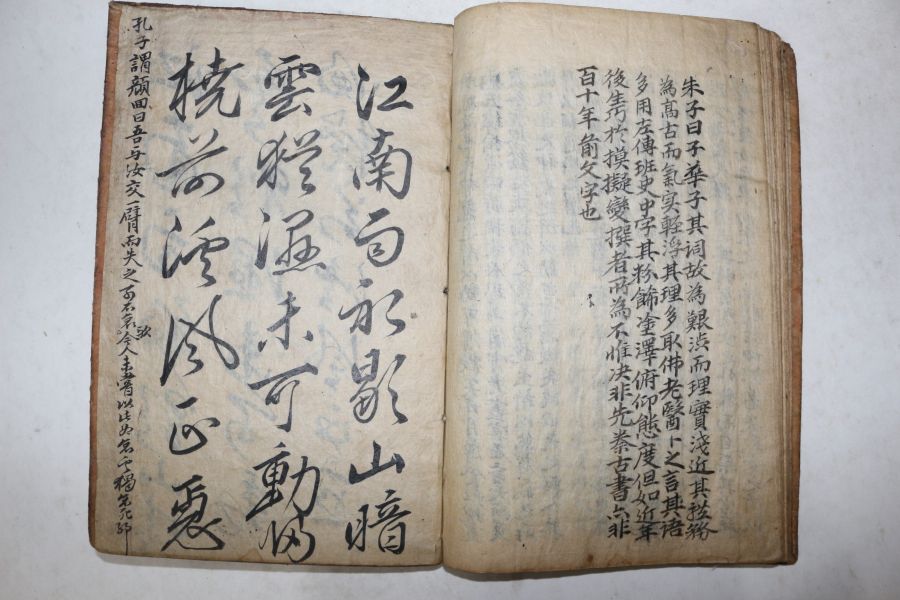 朱子曰子華子其詞故為艱澁而理實淺近其體務
為高古而氣实輕浮其理多取佛老醫卜之言其語
多用左傳班史中字其粉飾塗澤俯仰態度但如近年
後生巧於摸擬變撰者所為不惟决非先秦古書亦非
百十年前文字也
江南雨初歇山暗
雲猶濕未可動歸
橈前溪風正急
孔子謂顔回曰吾与汝交一臂而失之可不哀欤今人未嘗以此為念